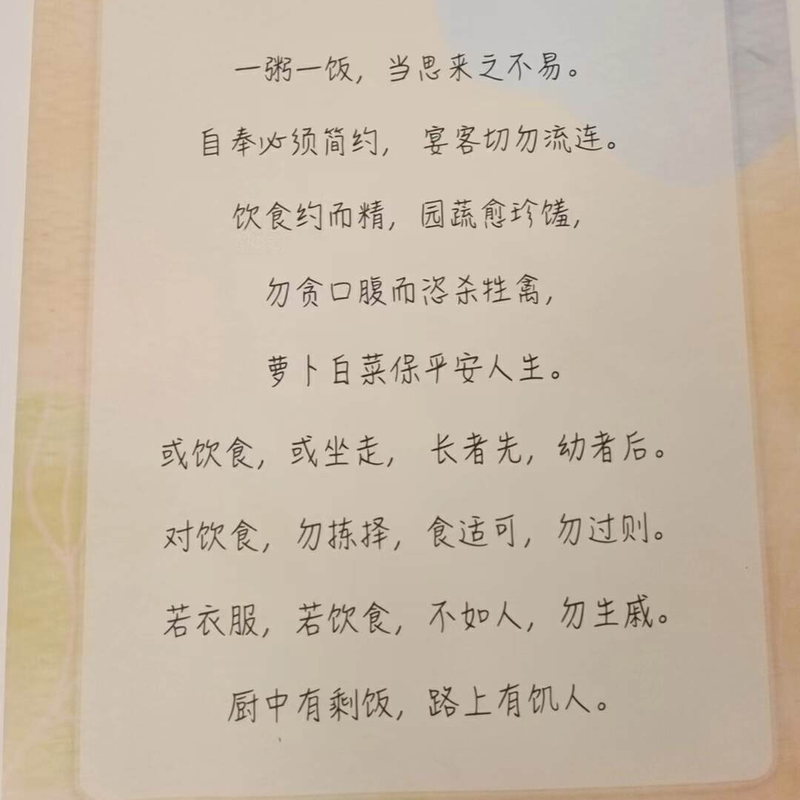 一粥一饭，当思来之不易。
自奉必须简约，宴客切勿流连。
饮食约而精，园蔬愈珍馐，
勿贪口腹而恣杀牲禽，
萝卜白菜保平安人生。
或饮食，或坐走，长者先，幼者后。
对饮食，勿拣择，食适可，勿过则。
若衣服，若饮食，不如人，勿生戚。
厨中有剩饭，路上有饥人。